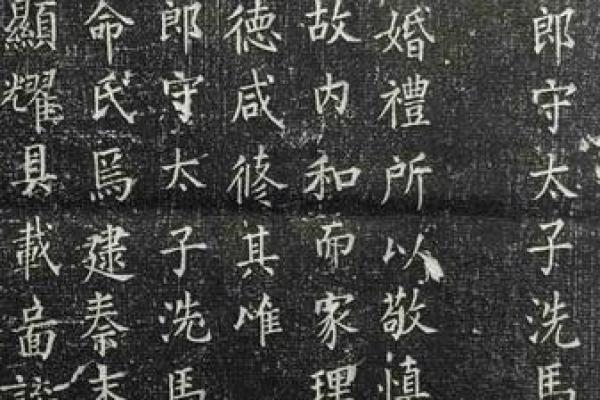 郎守太子洗馬
婚禮所以敬慎
故内和而家理
德咸修其唯
郎守太子洗馬
命氏爲建秦末
顯耀具載啚